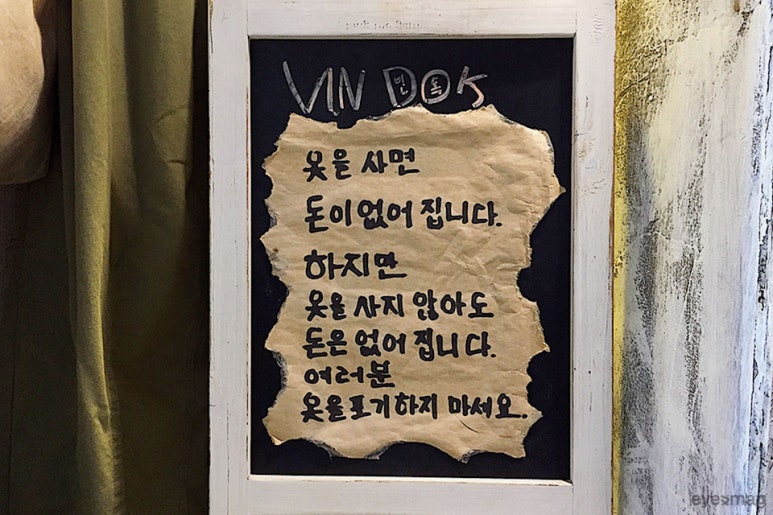 VIN DOK
빈 독
옷을 사면
돈이 없어 집니다.
하지만
옷을 사지 않아도
돈은 없어 집니다.
여러분
옷을 포기하지 마세요.
eyesmag